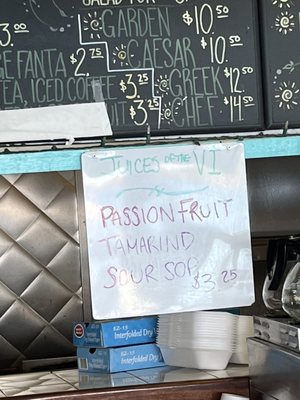 SALAD FOR
GARDEN $10.50
CAESAR $10.50
GREEK $12.50
CHEF $14.50
3.00
$2.75
E FANTA $2.75
TEA, ICED COFFEE
$3.25
$3.50
$3.
JUICES OF THE VI
PASSION FRUIT
TAMARIND
SOUR SOP
$3.25
EZ-15 Interfolded Dry
EZ-15 Interfolded Dry